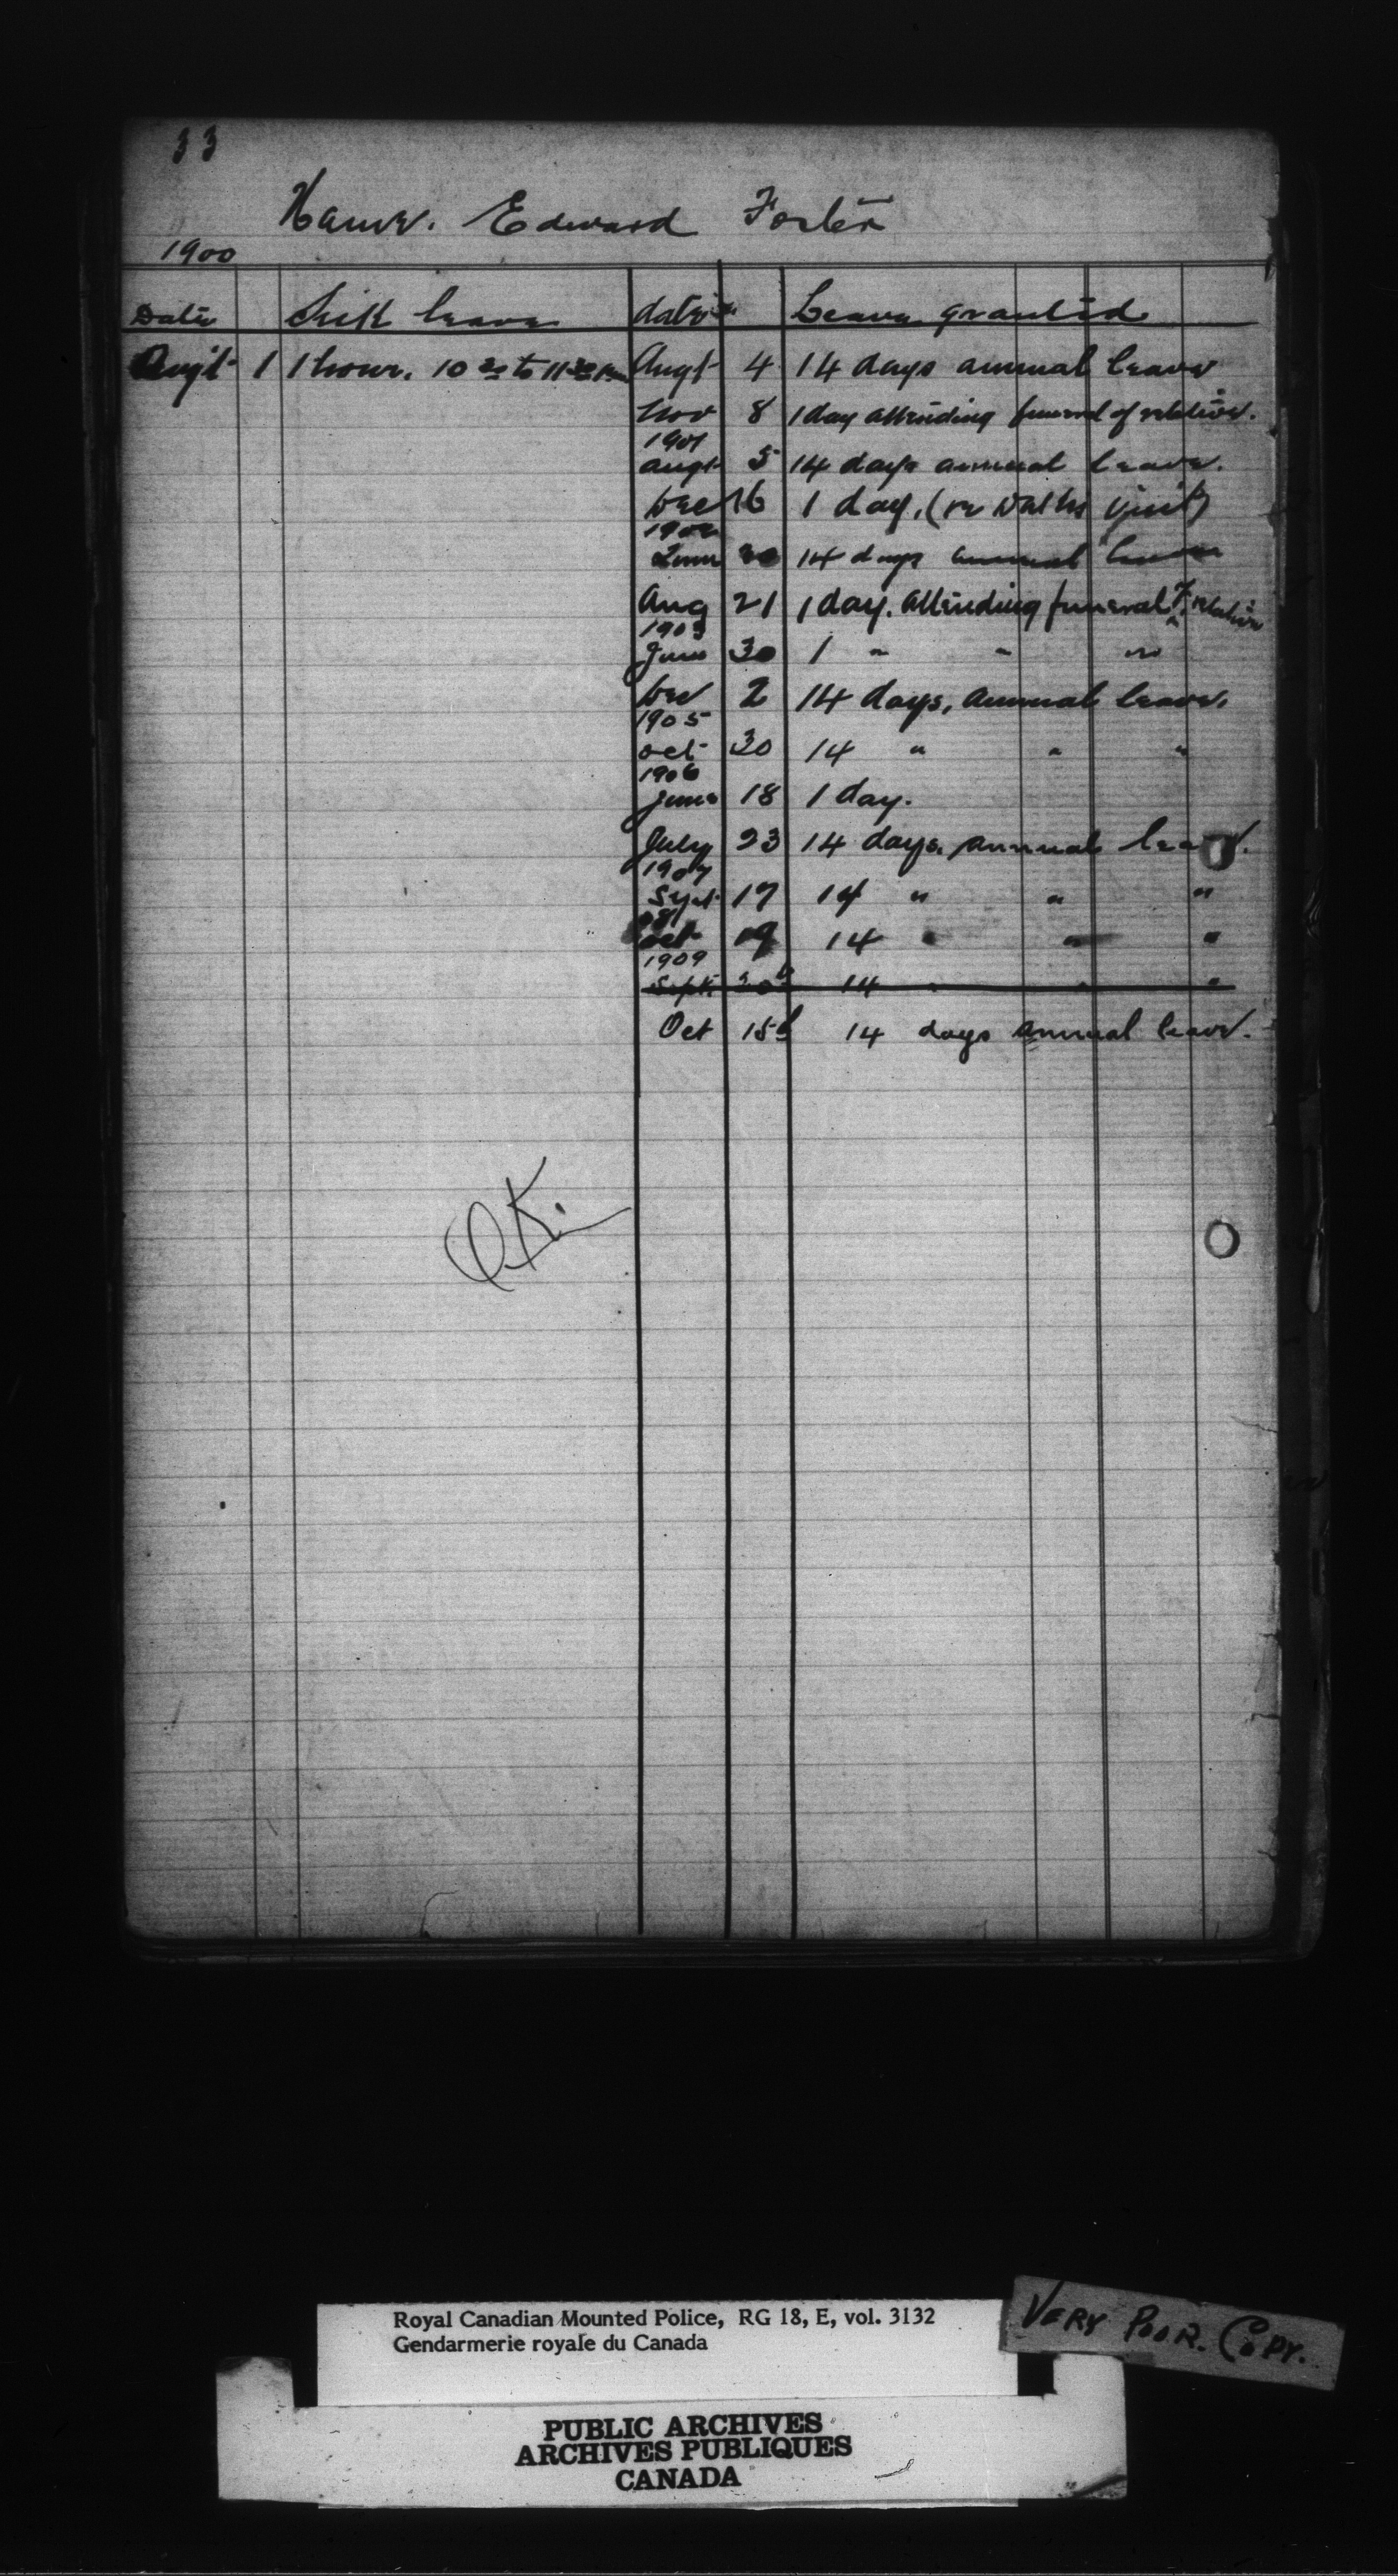 33
Name. Edward Foster
1900
Date Sick leave date Leave granted
Augt 1 1 hour. 10 30 to 11 30 Augt 4 14 days annual leave
Nov 8 1 day attending funeral of relative.
1901
augt 5 14 days annual leave.
Dec 16 1 day, (re visit)
1902
June 14 days annual leave
Aug 21 1 day. attending funeral of relative
1903
June 30 1 " " "
Dec 2 14 days, annual leave.
1905
oct 30 14 " " "
1906
June 18 1 day.
July 23 14 days. annual leave.
1907
Sept 17 14 " " "
08
oct 19 14 " " "
1909
Sept. 14 " " "
Oct 15th 14 days annual leave.
O.K.
Royal Canadian Mounted Police, RG 18, E, vol. 3132
Gendarmerie royale du Canada
VERY POOR. COPY.
PUBLIC ARCHIVES
ARCHIVES PUBLIQUES
CANADA